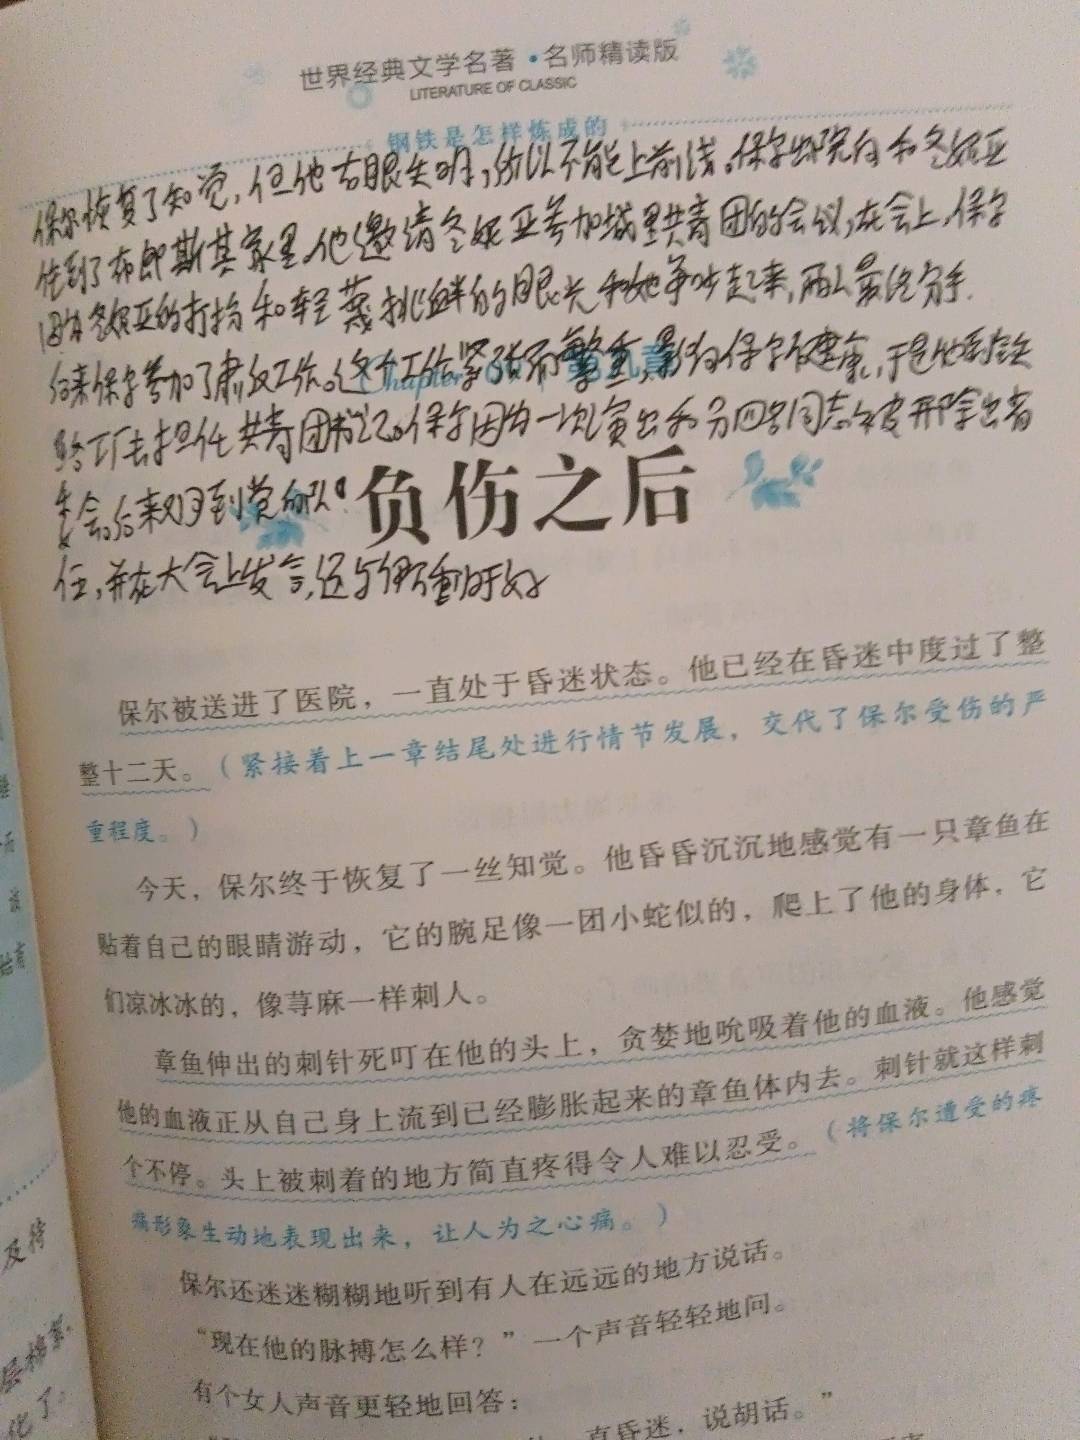 世界经典文学名著·名师精读版
LITERATURE OF CLASSIC
钢铁是怎样炼成的
保尔恢复了知觉,但他右眼失明,所以不能上前线。保尔出院后和冬妮亚
住到了布郎斯基家里.他邀请冬妮亚参加城里共青团的会议,在会上,保尔
因为冬妮亚的打扮和轻蔑挑衅的眼光和她争吵起来,两人最终分手.
后来保尔参加了肃反工作。这个工作紧张而繁重,影响保尔健康,于是他到铁
路工厂去担任共青团书记。保尔因为一次演出和另四名同志被开除出省
委会。后来又回到党的队
Chapter
负伤之后
任,并在大会上发言,还与
保尔被送进了医院,一直处于昏迷状态。他已经在昏迷中度过了整
整十二天。(紧接着上一章结尾处进行情节发展,交代了保尔受伤的严
重程度。)
今天,保尔终于恢复了一丝知觉。他昏昏沉沉地感觉有一只章鱼在
贴着自己的眼睛游动,它的腕足像一团小蛇似的,爬上了他的身体,它
们凉冰冰的,像荨麻一样刺人。
章鱼伸出的刺针死叮在他的头上,贪婪地吮吸着他的血液。他感觉
他的血液正从自己身上流到已经膨胀起来的章鱼体内去。刺针就这样刺
个不停。头上被刺着的地方简直疼得令人难以忍受。(将保尔遭受的疼
痛形象生动地表现出来,让人为之心痛。)
保尔还迷迷糊糊地听到有人在远远的地方说话。
“现在他的脉搏怎么样?”一个声音轻轻地问。
有个女人声音更轻地回答:
直昏迷,说胡话。”
及将
层棉絮.
化了。